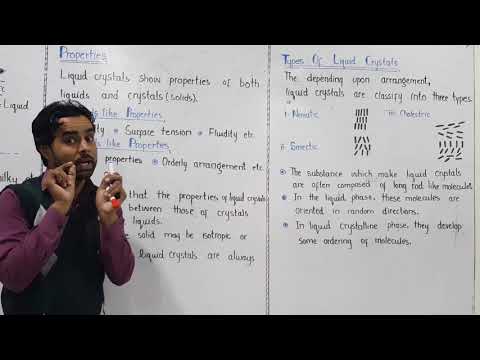 Liquid
Properties
Liquid crystals show properties of both
liquids and crystals (solids).
like Properties
Surface tension Fluidity etc.
like Properties
properties Orderly arrangement etc.
that the properties of liquid crystals
between those of crystals
liquids.
solid may be isotropic or
liquid crystals are always
Types Of Liquid Crystals
The depending upon arrangement,
liquid crystals are classify into three types.
i. Nematic
iii. Cholestric
ii. Smectic
The substance which make liquid crystals
are often composed of long rod like molecules
In the liquid phase, these molecules are
oriented in random directions.
In liquid crystalline phase, they develop
some ordering of molecules.